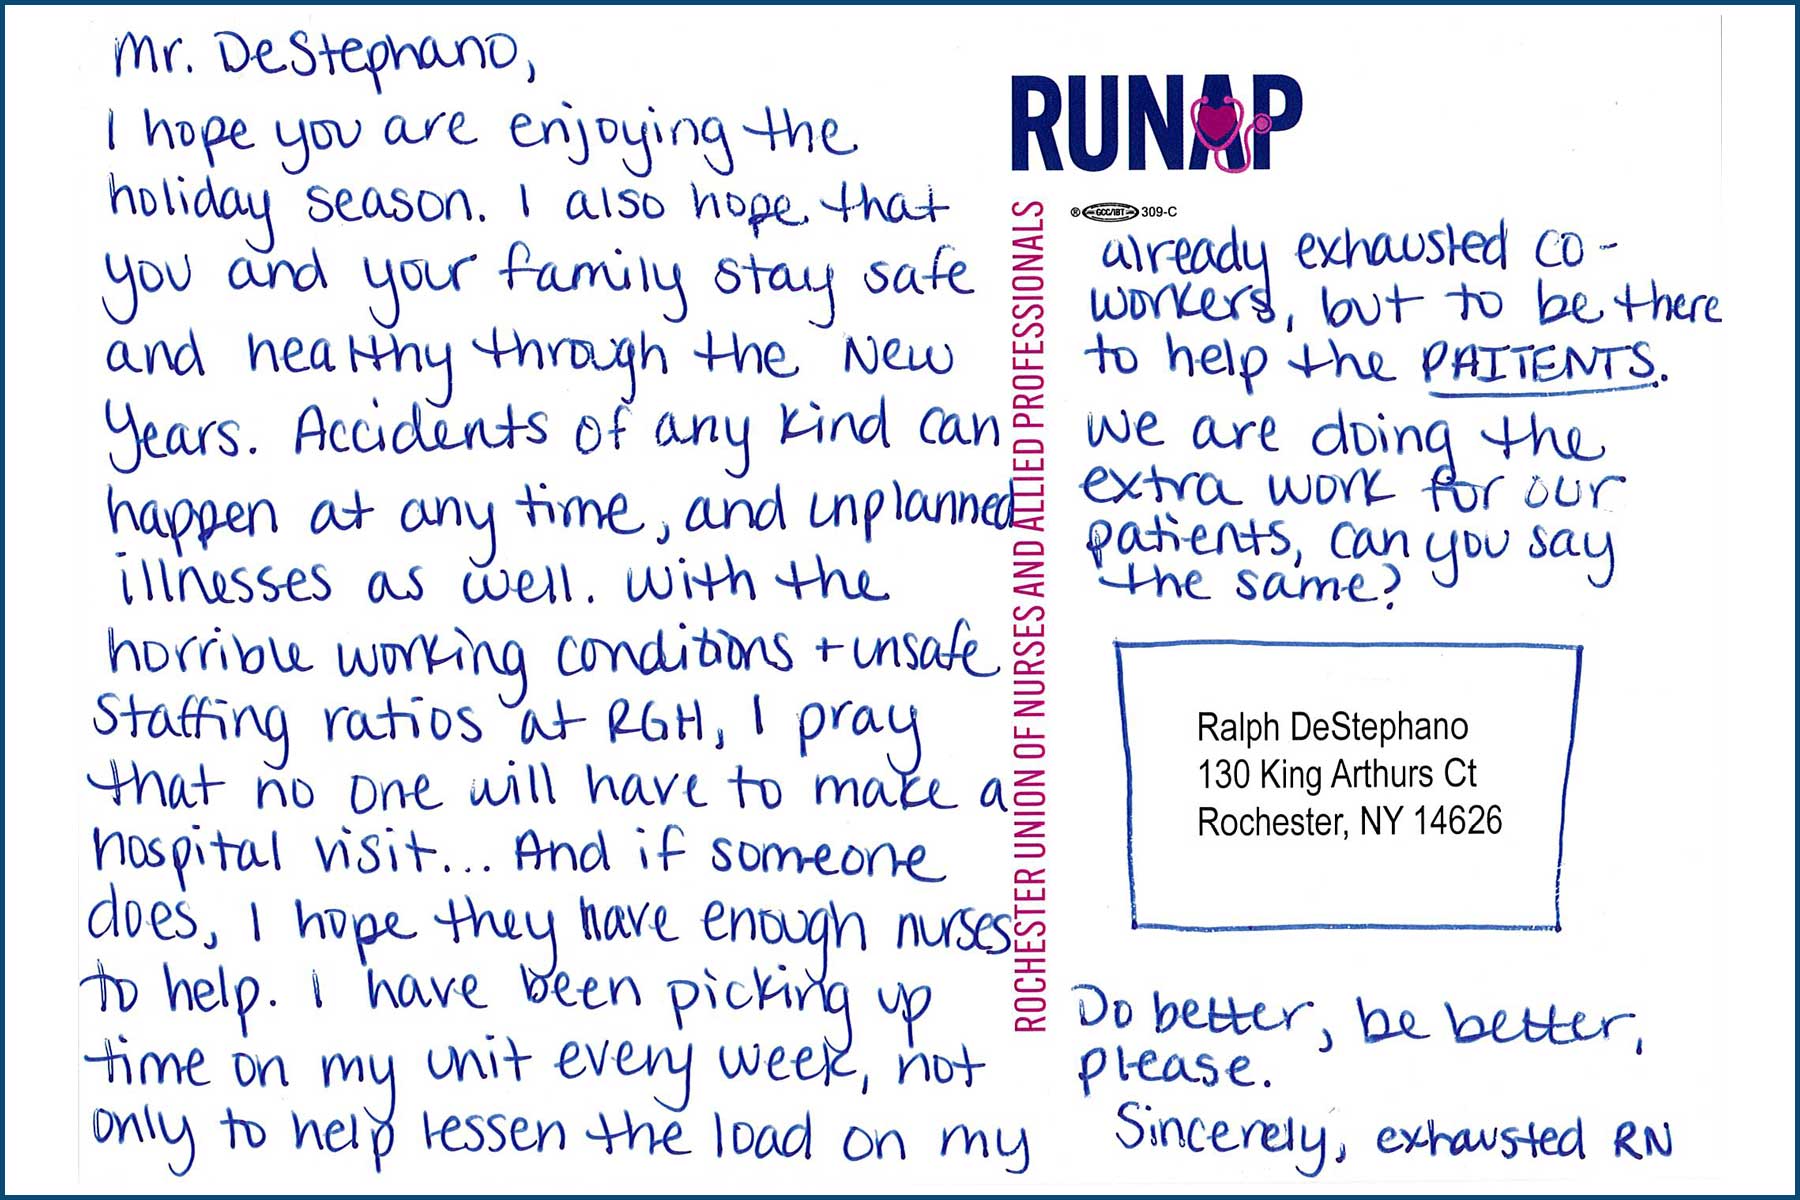 Mr. DeStephano,
I hope you are enjoying the
holiday season. I also hope that
you and your family stay safe
and healthy through the New
Years. Accidents of any kind can
happen at any time, and unplanned
illnesses as well. With the
horrible working conditions + unsafe
staffing ratios at RGH, I pray
that no one will have to make a
hospital visit... And if someone
does, I hope they have enough nurses
to help. I have been picking up
time on my unit every week, not
only to help lessen the load on my
RUNAP
ROCHESTER UNION OF NURSES AND ALLIED PROFESSIONALS
® GCC/IBT 309-C
already exhausted co-
workers, but to be there
to help the PAITENTS.
We are doing the
extra work for our
patients, can you say
the same?
Ralph DeStephano
130 King Arthurs Ct
Rochester, NY 14626
Do better, be better,
please.
Sincerely, exhausted RN